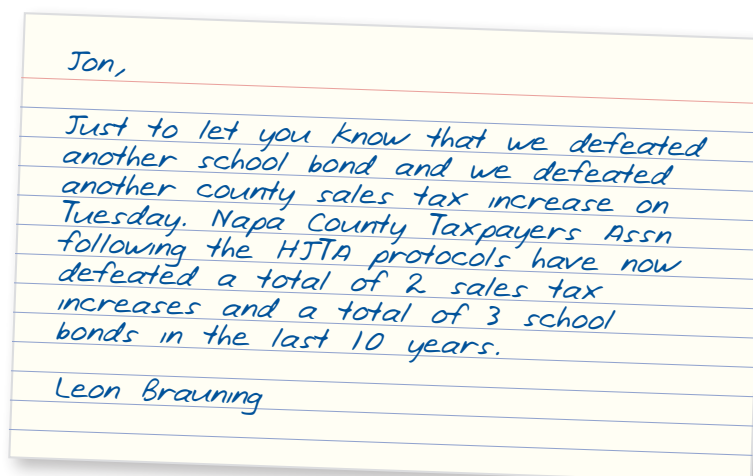 Jon,
Just to let you know that we defeated
another school bond and we defeated
another county sales tax increase on
Tuesday. Napa County Taxpayers Assn
following the HJTA protocols have now
defeated a total of 2 sales tax
increases and a total of 3 school
bonds in the last 10 years.
Leon Brauning